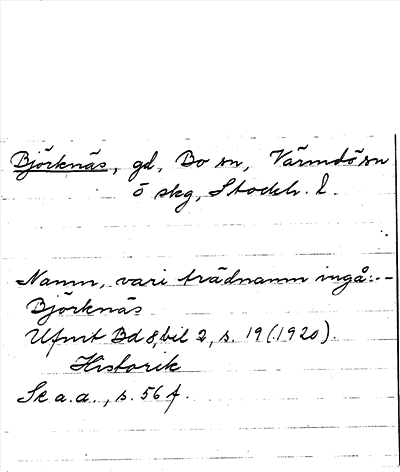 Björknäs, gd, Bo sn, Värmdö sn
ö skg, Stockh. l.
Namn, vari trädnamn ingå:-
Björknäs
Ufmt Bd 8, bil 2, s. 19 (1920).
Historik
Se a.a., s. 56 f.